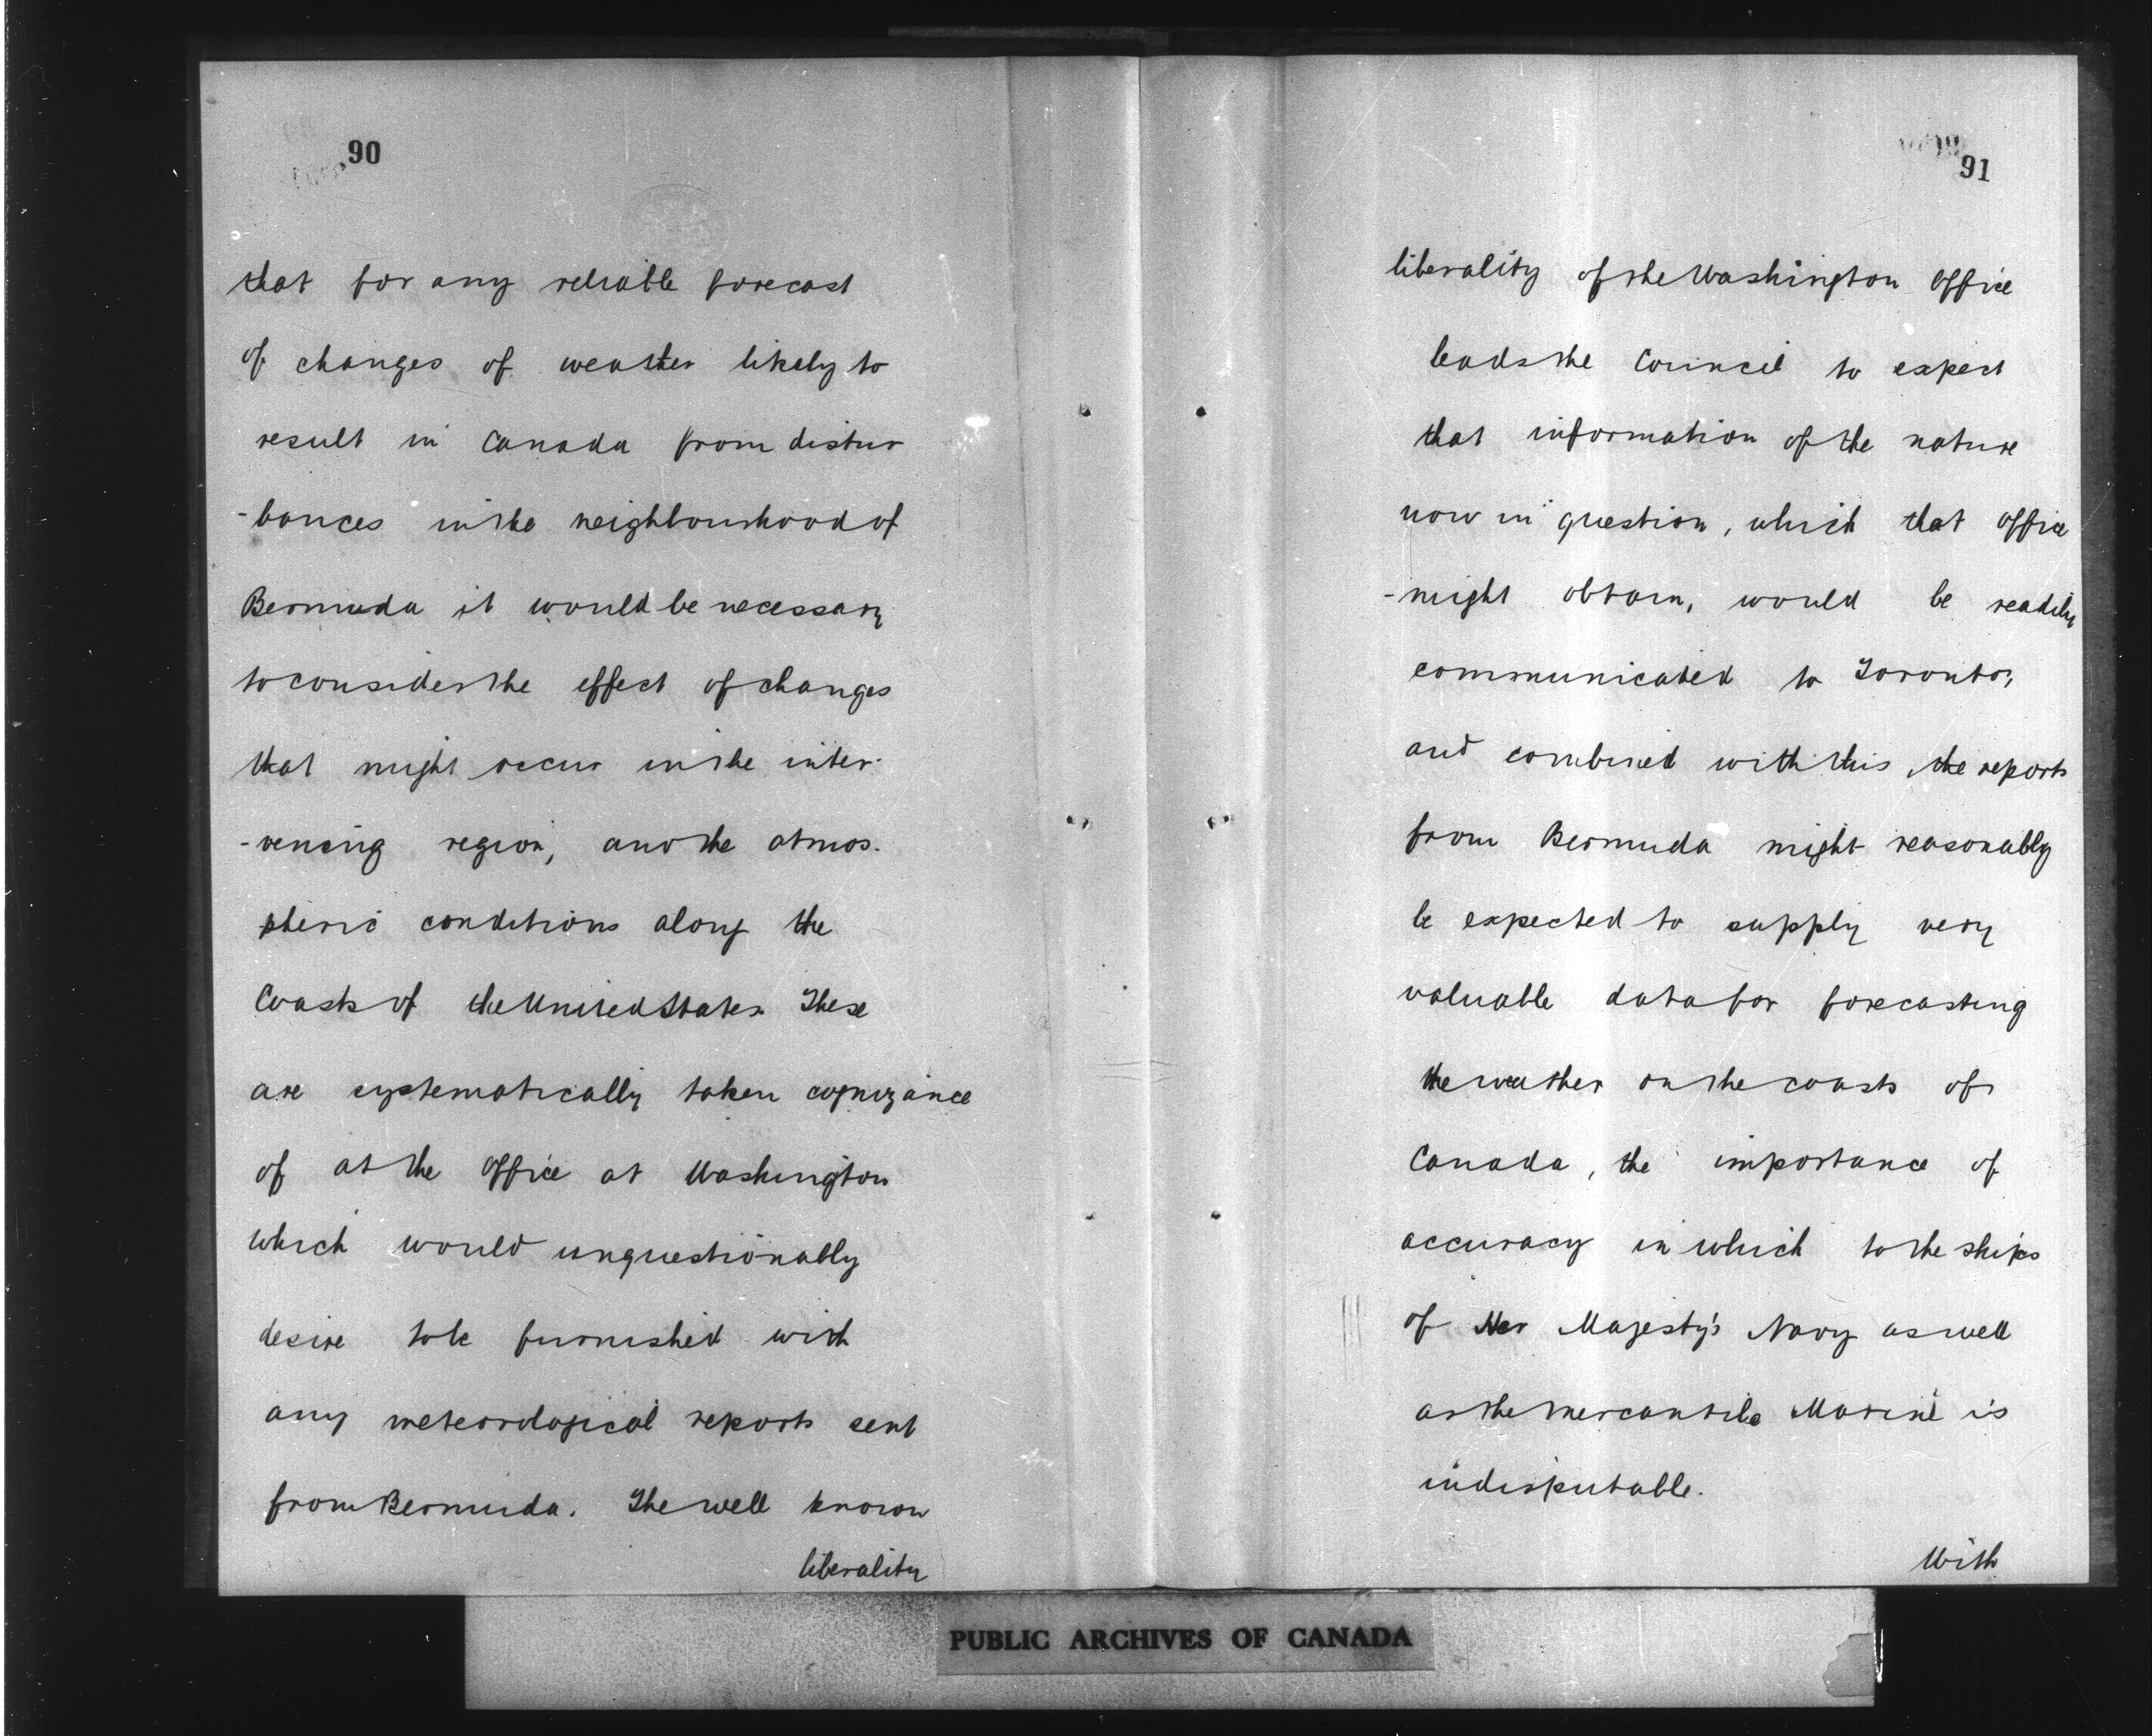 90
that for any reliable forecast
of changes of weather likely to
result in Canada from distur
-bances in the neighbourhood of
Bermuda it would be necessary
to consider the effect of changes
that might occur in the inter-
-vening region, and the atmos-
pheric conditions along the
Coasts of the United States. These
are systematically taken cognizance
of at the Office at Washington
which would unquestionably
desire to be furnished with
any meteorological reports sent
from Bermuda. The well known
liberality
91
liberality of the Washington Office
leads the Council to expect
that information of the nature
now in question, which that Office
-might obtain, would be readily
communicated to Toronto,
and combined with this, the reports
from Bermuda might reasonably
be expected to supply very
valuable data for forecasting
the weather on the coasts of
Canada, the importance of
accuracy in which to the ships
of Her Majesty's Navy as well
as the Mercantile Marine is
indisputable.
With
PUBLIC ARCHIVES OF CANADA